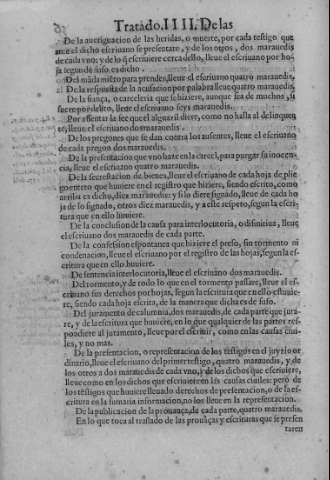 Tratado. IIII. De las
De la aueriguacion de las heridas, o muerte, por cada testigo que
ante el dicho escriuano se presentare, y de los otros, dos marauedis
de cada vno: y de lo q̃ escriuiere cerca dello, lleue el escriuano por ho-
ja segun de suso es dicho.
Del mãdamiẽto para prender, lleue el escriuano quatro marauedis,
De la respuesta de la acusacion por palabra lleue quatro marauedis.
De la fiança, o carceleria que se hiziere, aunque sea de muchos, si
fue por vn delito, lleue el escriuano seys marauedis.
Por assentar la fee que el alguazil diere, como no halla al delinquen
te, lleue el escriuano dos marauedis.
De los pregones que se dan contra los ausentes, lleue el escriuano
de cada pregon dos marauedis.
De la presentacion que vno haze en la carcel, para purgar su inocen-
cia, lleue el escriuano quatro marauedis.
De la secrestacion de bienes, lleue el escriuano de cada hoja de plie
go entero que huuiere en el registro que hiziere, siendo escrito, como
arriba es dicho, diez marauedis: y si lo diere signado, lleue de cada ho
ja de lo signado, otros diez marauedis, y a este respeto, segun la escri-
tura que en ello huuiere.
De la conclusion de la causa para interlocutoria, o difinitiua, lleue
el escriuano dos marauedis de cada parte.
De la confession espontanea que hiziere el preso, sin tormento ni
condenacion, lleue el escriuano por el registro de las hojas, segun la es
critura que en ello huuiere.
De sentencia interlocutoria, lleue el escriuano dos marauedis.
Del tormento, y de todo lo que en el tormento passare, lleue el es-
criuano sus derechos por hojas, segun la escritura que en ello estuuie-
re, siendo cada hoja escrita, de la manera que dicha es de suso.
Del juramento de calumnia, dos marauedis, de cada parte que jura-
re, y de la escritura que huuiere, en lo que qualquier de las partes res-
pondiere al juramento, lleue por el escriuir, como en las causas ciui-
les, y no mas.
De la presentacion, o representacion de los testigos en el juyzio or
dinario, lleue el escriuano del primer testigo, quatro marauedis, y de
los otros a dos marauedis de cada vno, y de los dichos que escriuiere,
lleue como en los dichos que escriuiere en las causas ciuiles: pero de
los testigos que huuiere lleuado derechos de presentacion, o de la es-
critura en la sumaria informacion, no los lleue en la representacion.
De la publicacion de la prouança, de cada parte, quatro marauedis.
En lo que toca al traslado de las prouãças y escrituras que se presen
taren